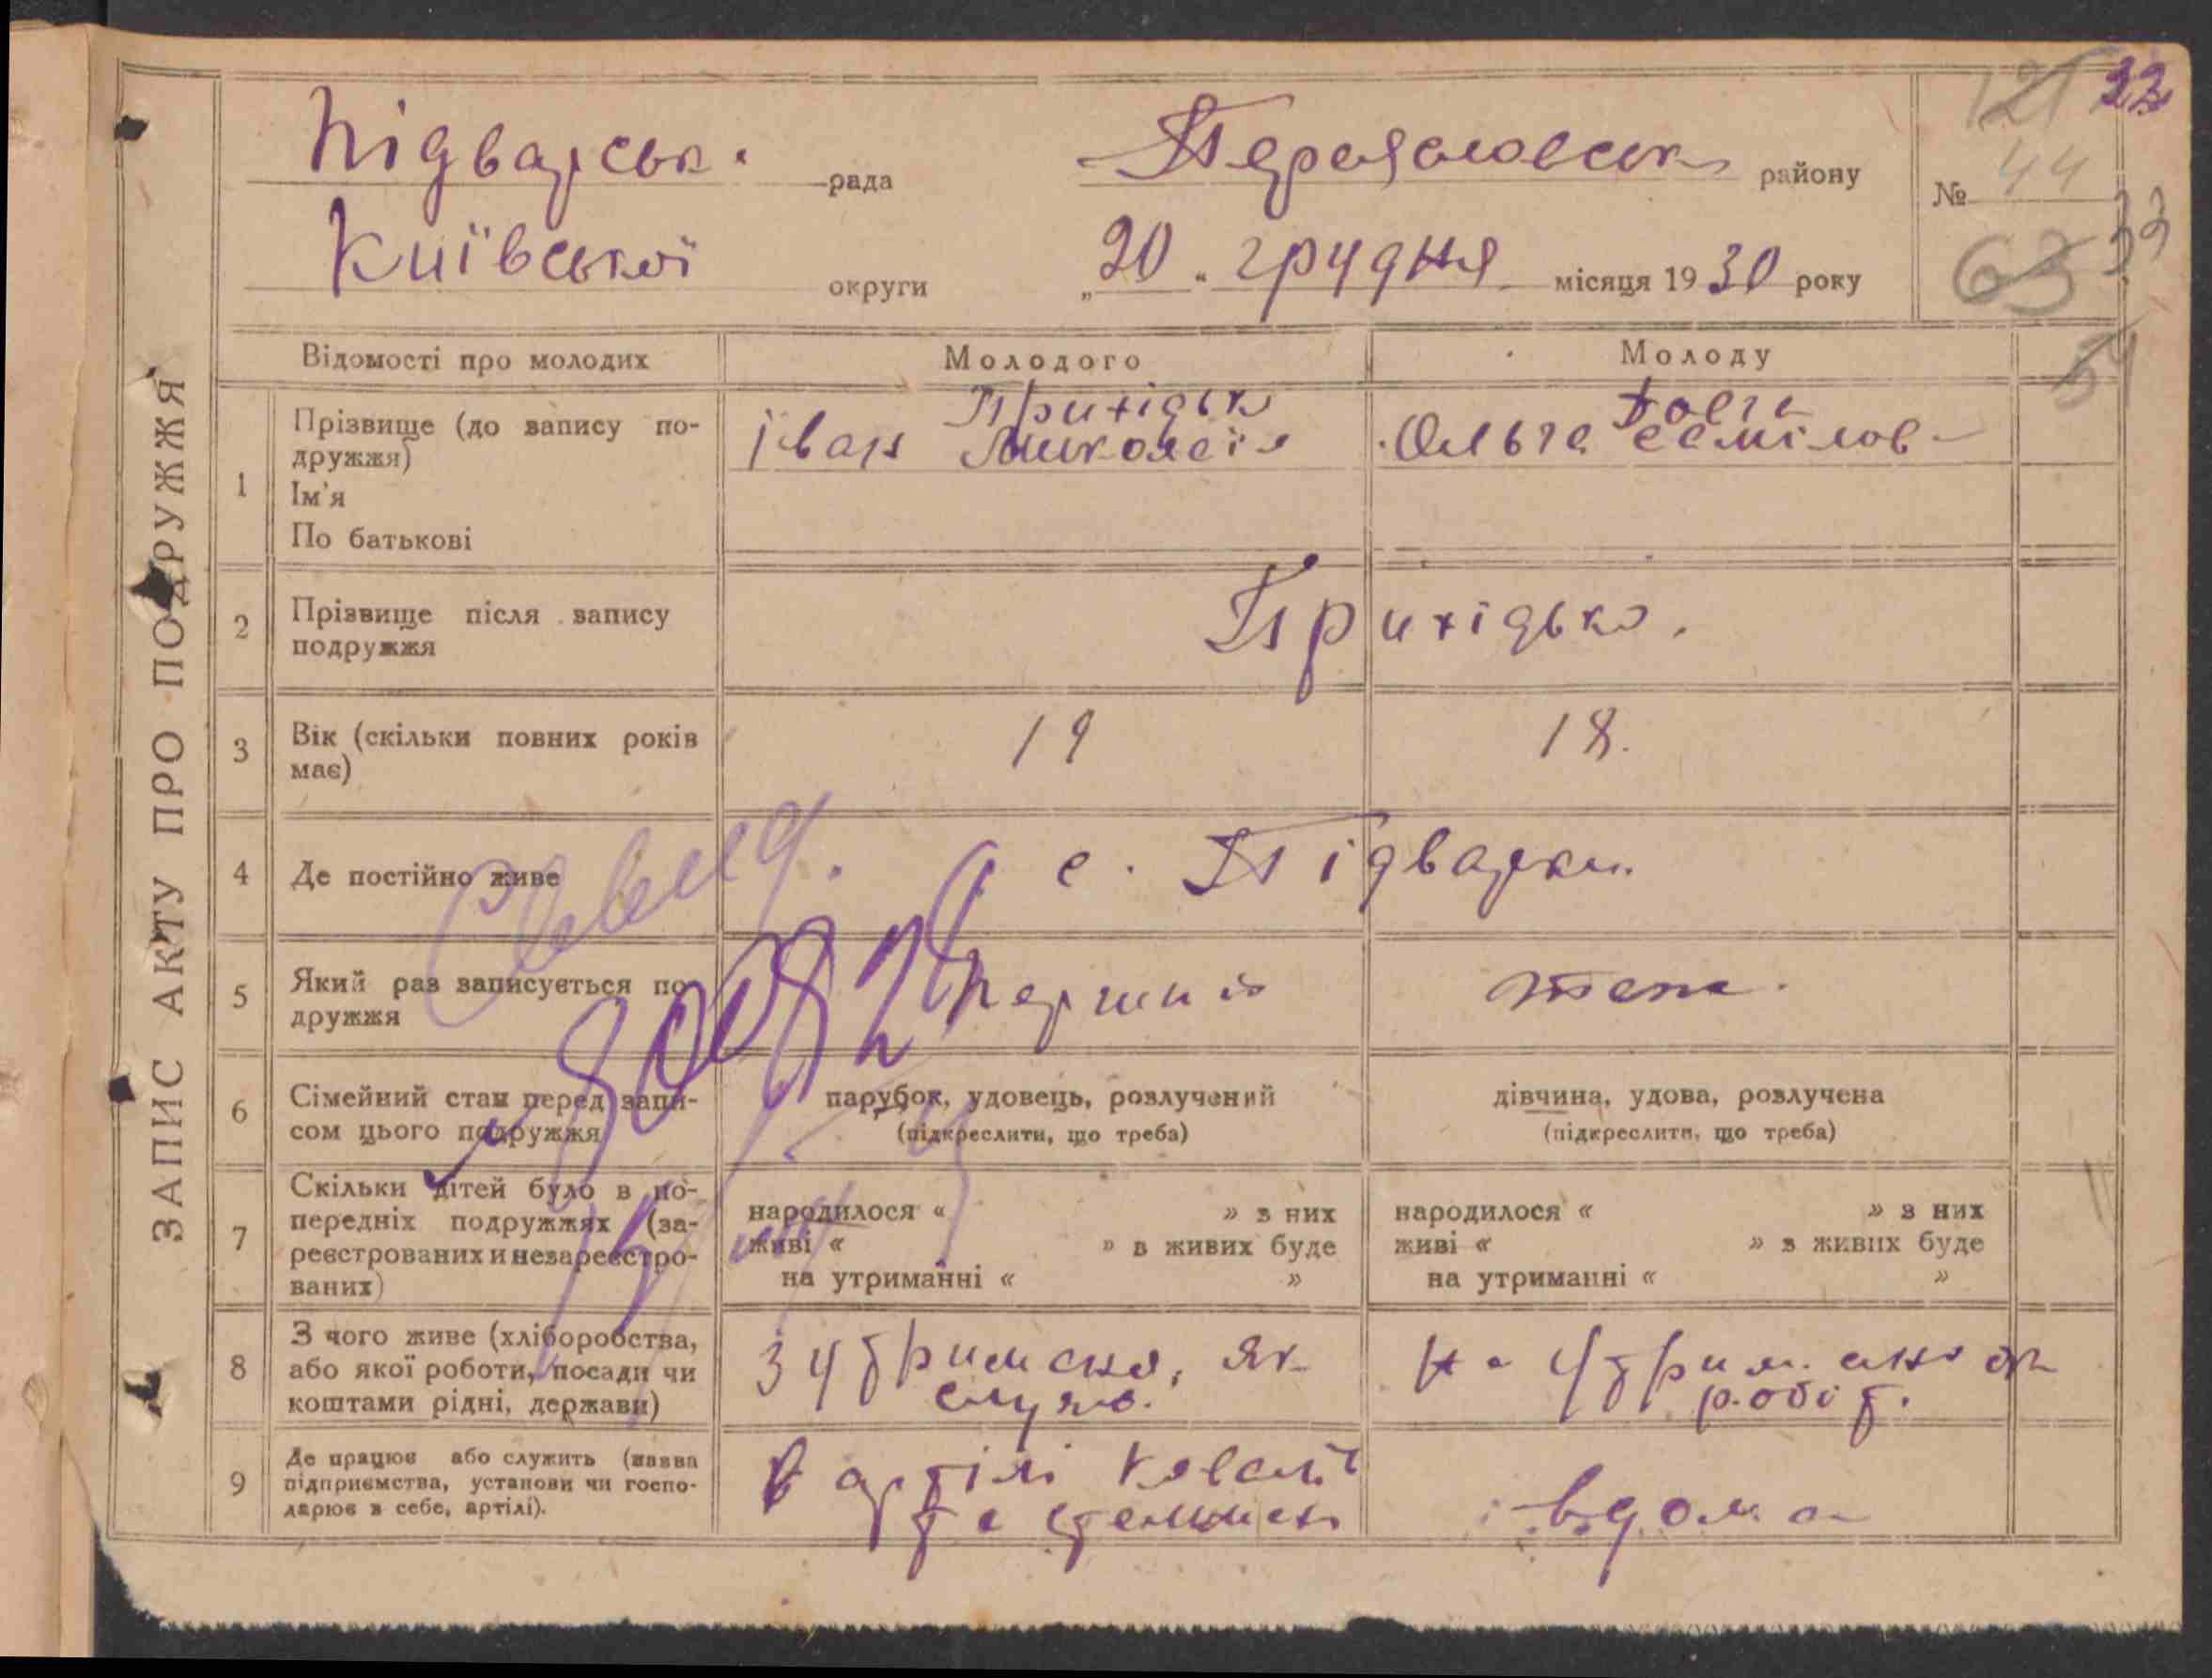 Підварськ. рада
Переяславськ району
№ 44
Київської округи
„20" грудня місяця 1930 року
63
ЗАПИС АКТУ ПРО ПОДРУЖЖЯ
Відомості про молодих
Молодого
Молоду
1
Прізвище (до запису по-
дружжя)
Ім'я
По батькові
Прихідько
Іван Миколаїв
Довга
Ольга
2
Прізвище після запису
подружжя
Прихідько.
3
Вік (скільки повних років
має)
19
18.
4
Де постійно живе
с. Підварки.
5
Який раз записується по-
дружжя
перший
теж.
6
Сімейний стан перед запи-
сом цього подружжя
парубок, удовець, розлучений
(підкреслити, що треба)
дівчина, удова, розлучена
(підкреслити, що треба)
7
Скільки дітей було в по-
передніх подружжях (за-
реєстрованих и незареєстро-
ваних)
народилося « » з них
живі « » в живих буде
на утриманні « »
народилося « » з них
живі « » з живих буде
на утриманні « »
8
З чого живе (хліборобства,
або якої роботи, посади чи
коштами рідні, держави)
9
Де працює або служить (назва
підприємства, установи чи госпо-
дарює в себе, артілі).
в артілі
вдома